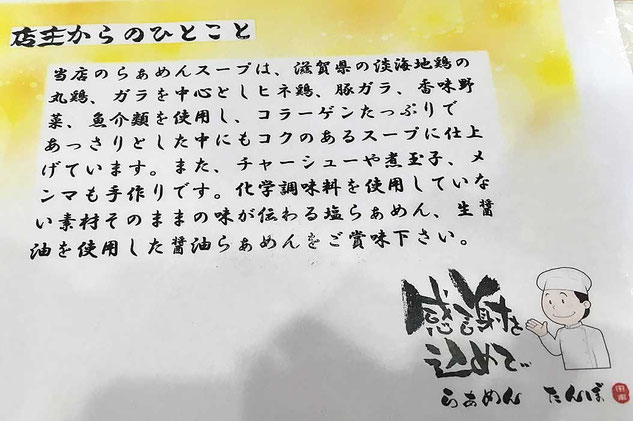 店主からのひとこと
当店のらぁめんスープは、滋賀県の淡海地鶏の
丸鶏、ガラを中心としヒネ鶏、豚ガラ、香味野
菜、魚介類を使用し、コラーゲンたっぷりで
あっさりとした中にもコクのあるスープに仕上
げています。また、チャーシューや煮玉子、メ
ンマも手作りです。化学調味料を使用していな
い素材そのままの味が伝わる塩らぁめん、生醤
油を使用した醤油らぁめんをご賞味下さい。
感謝を
込めて
らぁめん たんぼ